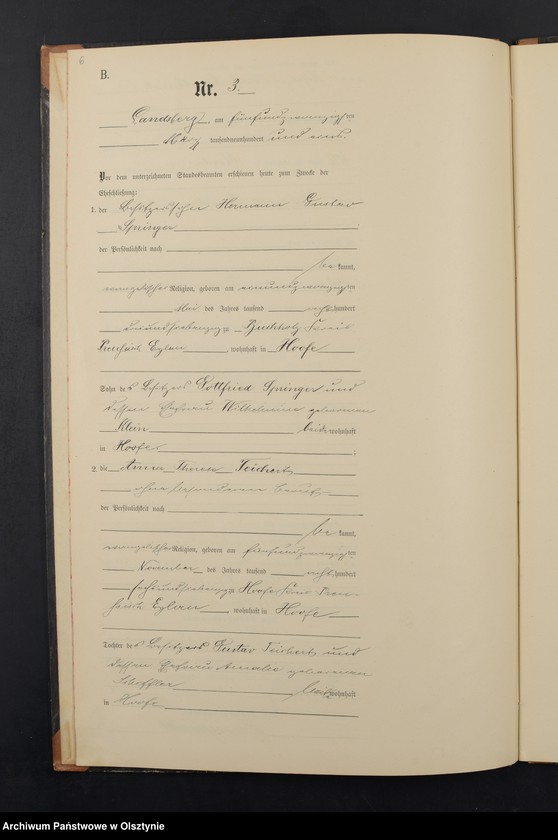 6
B.
Nr. 3.
Landsberg, am fünfundzwanzigsten
März tausendneunhundert und
Vor dem unterzeichneten Standesbeamten erschienen heute zum Zwecke der
Eheschließung:
1. der Besitzersohn Hermann Gustav
Springer
der Persönlichkeit nach
be kannt,
evangelischer Religion, geboren am
Mai des Jahres tausend acht hundert
zu Buchholz Kreis
Preußisch Eylau, wohnhaft in Hoofe
Sohn des Besitzers Gottfried Springer und
dessen Ehefrau Wilhelmine geborenen
Klein beide wohnhaft
in Hoofe;
2. die Anna Therese Teichert
ohne besonderen Beruf
der Persönlichkeit nach
be kannt,
evangelischer Religion, geboren am fünfundzwanzigsten
November des Jahres tausend acht hundert
zu Hoofe Kreis Preu-
ßisch Eylau, wohnhaft in Hoofe
Tochter des Besitzers Gustav Teichert und
dessen Ehefrau Amalie geborenen
beide wohnhaft
in Hoofe
Archiwum Państwowe w Olsztynie